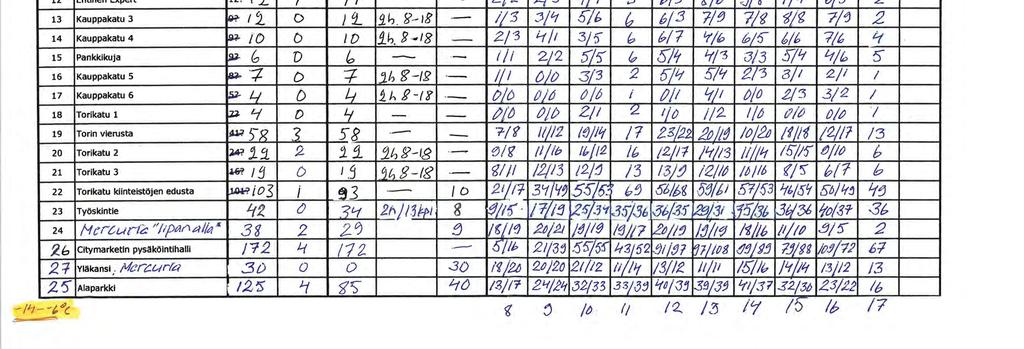 13 Kauppakatu 3 12 0 12 2h. 8-18 — 1/3 3/4 5/6 6 6/3 7/9 7/8 8/8 7/9 2
14 Kauppakatu 4 10 0 10 2h. 8-18 — 2/3 4/1 3/5 6 6/7 4/6 6/5 6/6 7/6 4
15 Pankkikuja 6 0 6 — — 1/1 2/2 5/5 6 5/4 4/3 3/3 5/4 4/6 5
16 Kauppakatu 5 7 0 7 2h 8-18 — 1/1 0/0 3/3 2 5/4 5/4 2/3 3/1 2/1 1
17 Kauppakatu 6 4 0 4 2h 8-18 — 0/0 0/0 0/0 1 0/1 4/1 0/0 2/3 3/2 1
18 Torikatu 1 4 0 4 — — 0/0 0/0 2/1 2 1/0 1/2 1/0 0/0 0/0 1
19 Torin vierusta 58 3 58 — — 7/8 11/12 19/14 17 23/22 20/19 10/20 18/18 12/17 13
20 Torikatu 2 22 2 22 2h 8-18 — 9/8 11/16 16/12 16 12/17 14/13 11/14 15/15 9/10 6
21 Torikatu 3 19 0 19 2h 8-18 — 8/11 12/13 12/9 13 13/9 12/10 10/16 8/5 6/7 6
22 Torikatu kiinteistöjen edusta 103 1 93 — 10 21/17 34/49 55/53 69 56/68 59/61 57/53 46/54 50/49 49
23 Työskintie 42 0 34 2h/13kpl 8 9/15 17/19 25/34 35/36 36/35 29/31 35/36 36/36 40/37 36
24 Mercuria "lipan alla" 38 2 29 9 18/19 20/21 19/19 19/17 20/19 19/19 18/16 11/10 9/5 2
26 Citymarketin pysäköintihalli 172 4 172 — 5/16 21/39 55/55 43/52 91/97 97/108 99/89 79/88 109/72 67
27 Yläkansi, Mercuria 30 0 0 30 18/20 20/20 21/12 11/14 13/12 11/11 15/16 14/14 13/12 13
25 Alaparkki 125 4 85 40 13/17 24/24 32/33 33/39 40/39 39/39 41/37 32/30 23/22 16
-14--6°C 8 9 10 11 12 13 14 15 16 17